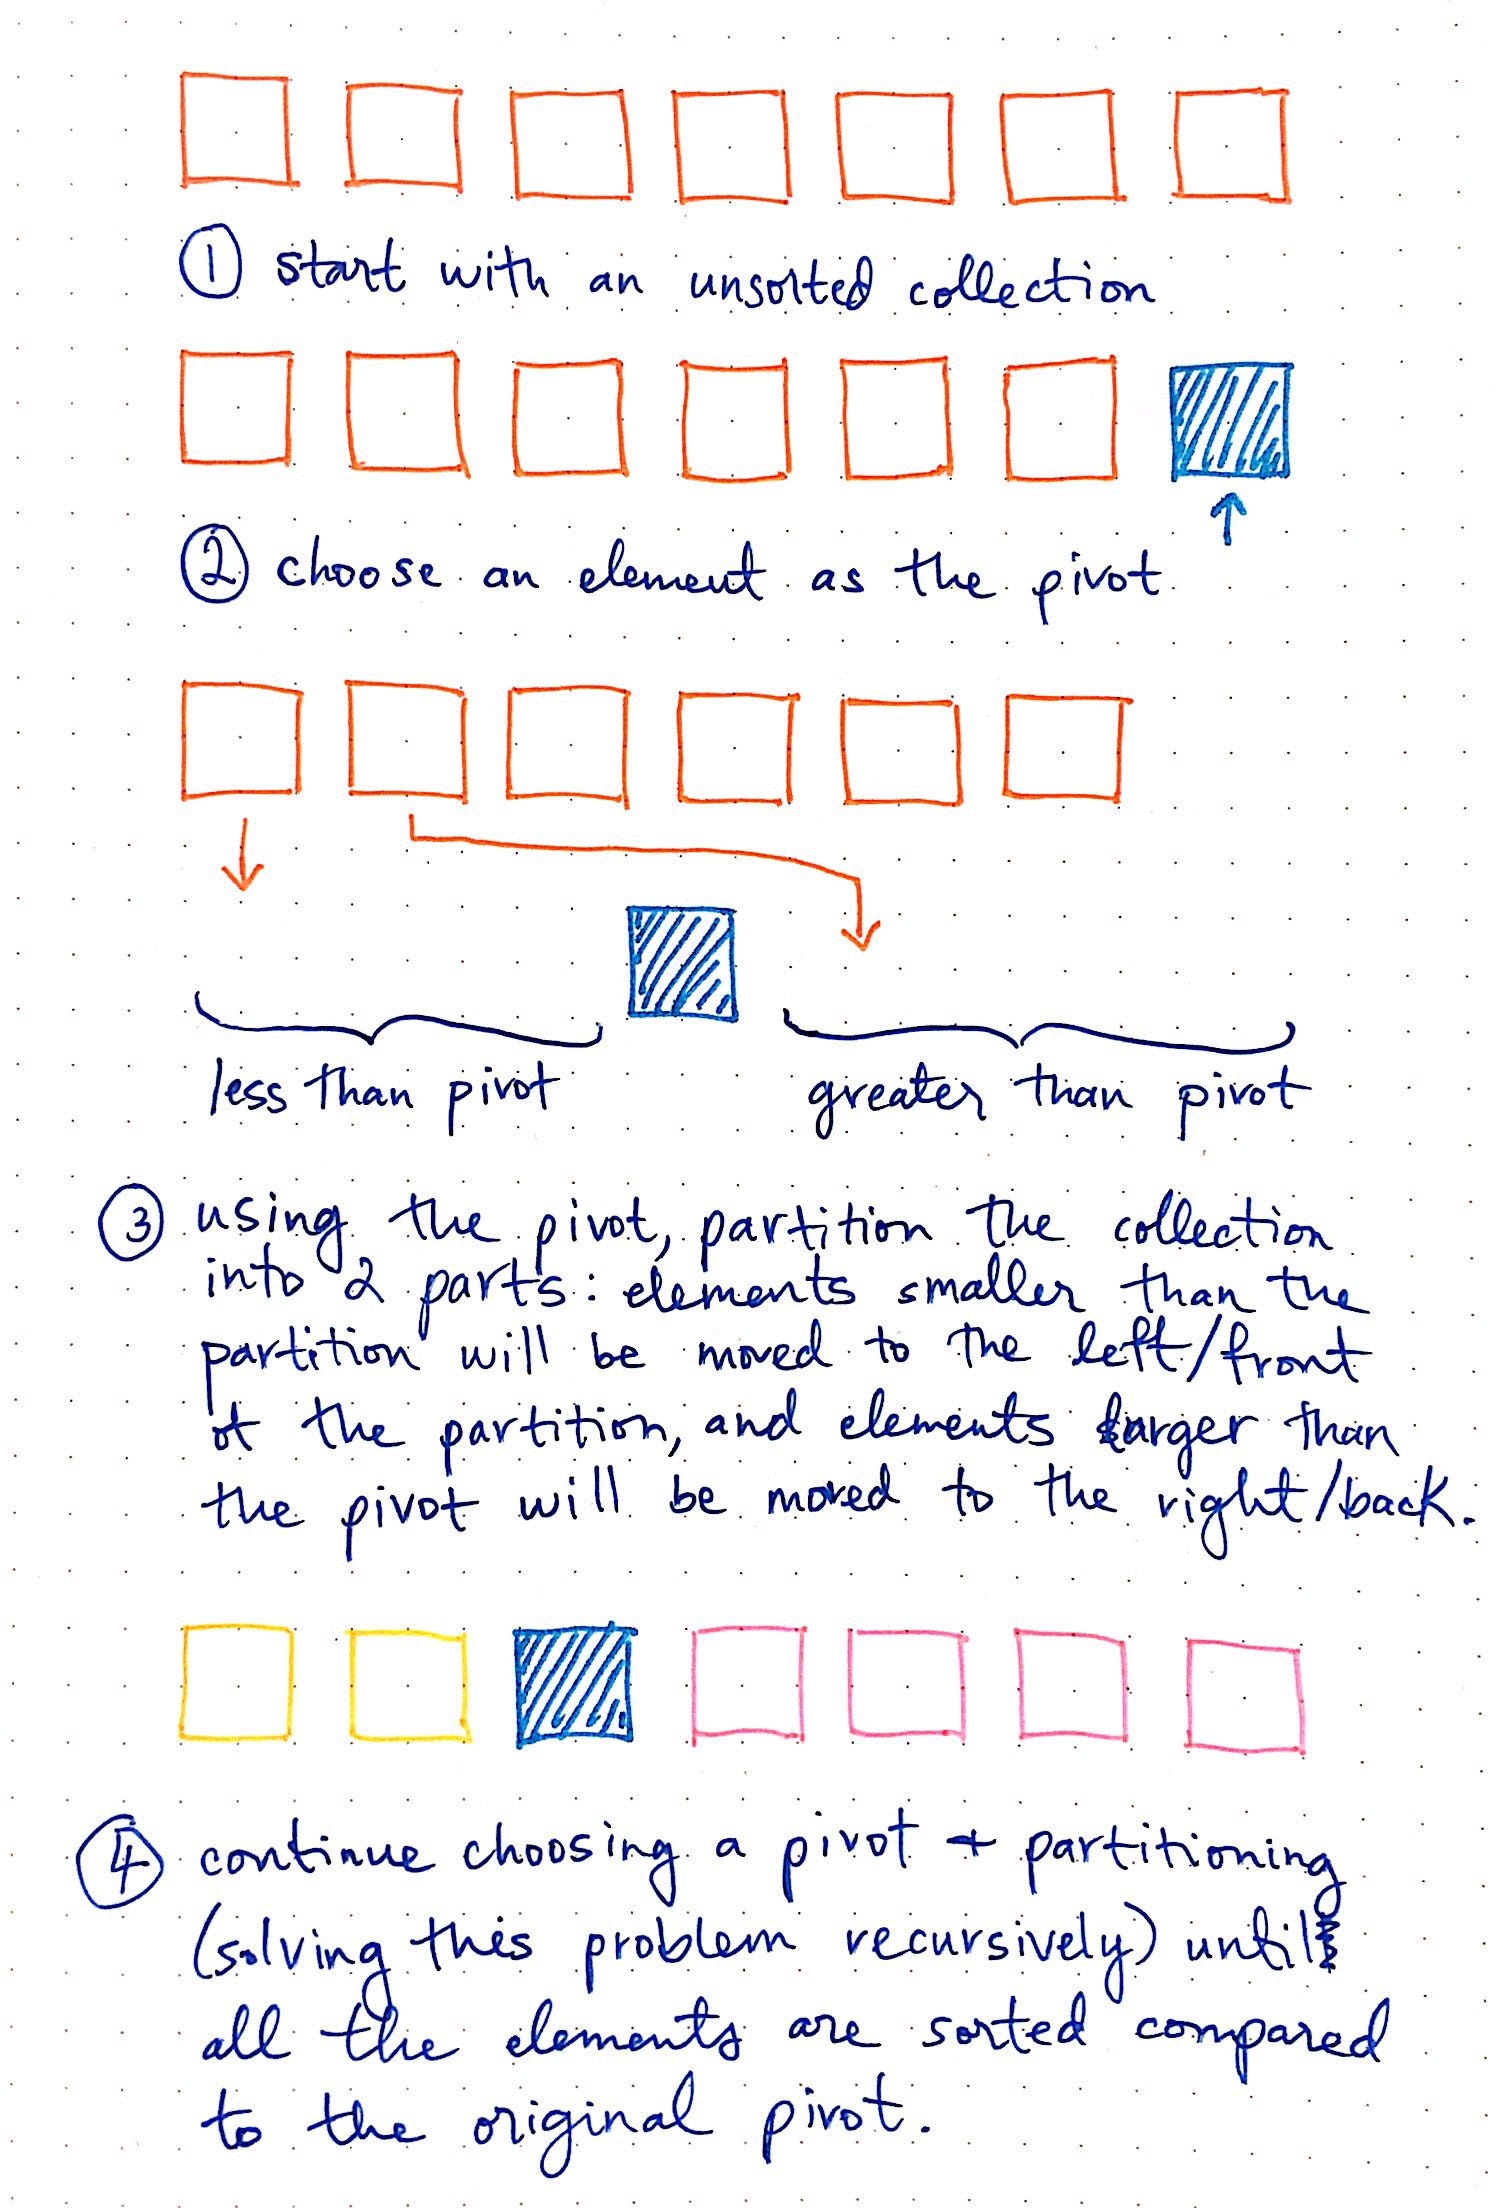 ① start with an unsorted collection
② choose an element as the pivot
less than pivot greater than pivot
③ using the pivot, partition the collection
into 2 parts: elements smaller than the
partition will be moved to the left/front
of the partition, and elements larger than
the pivot will be moved to the right/back.
④ continue choosing a pivot + partitioning
(solving this problem recursively) until
all the elements are sorted compared
to the original pivot.